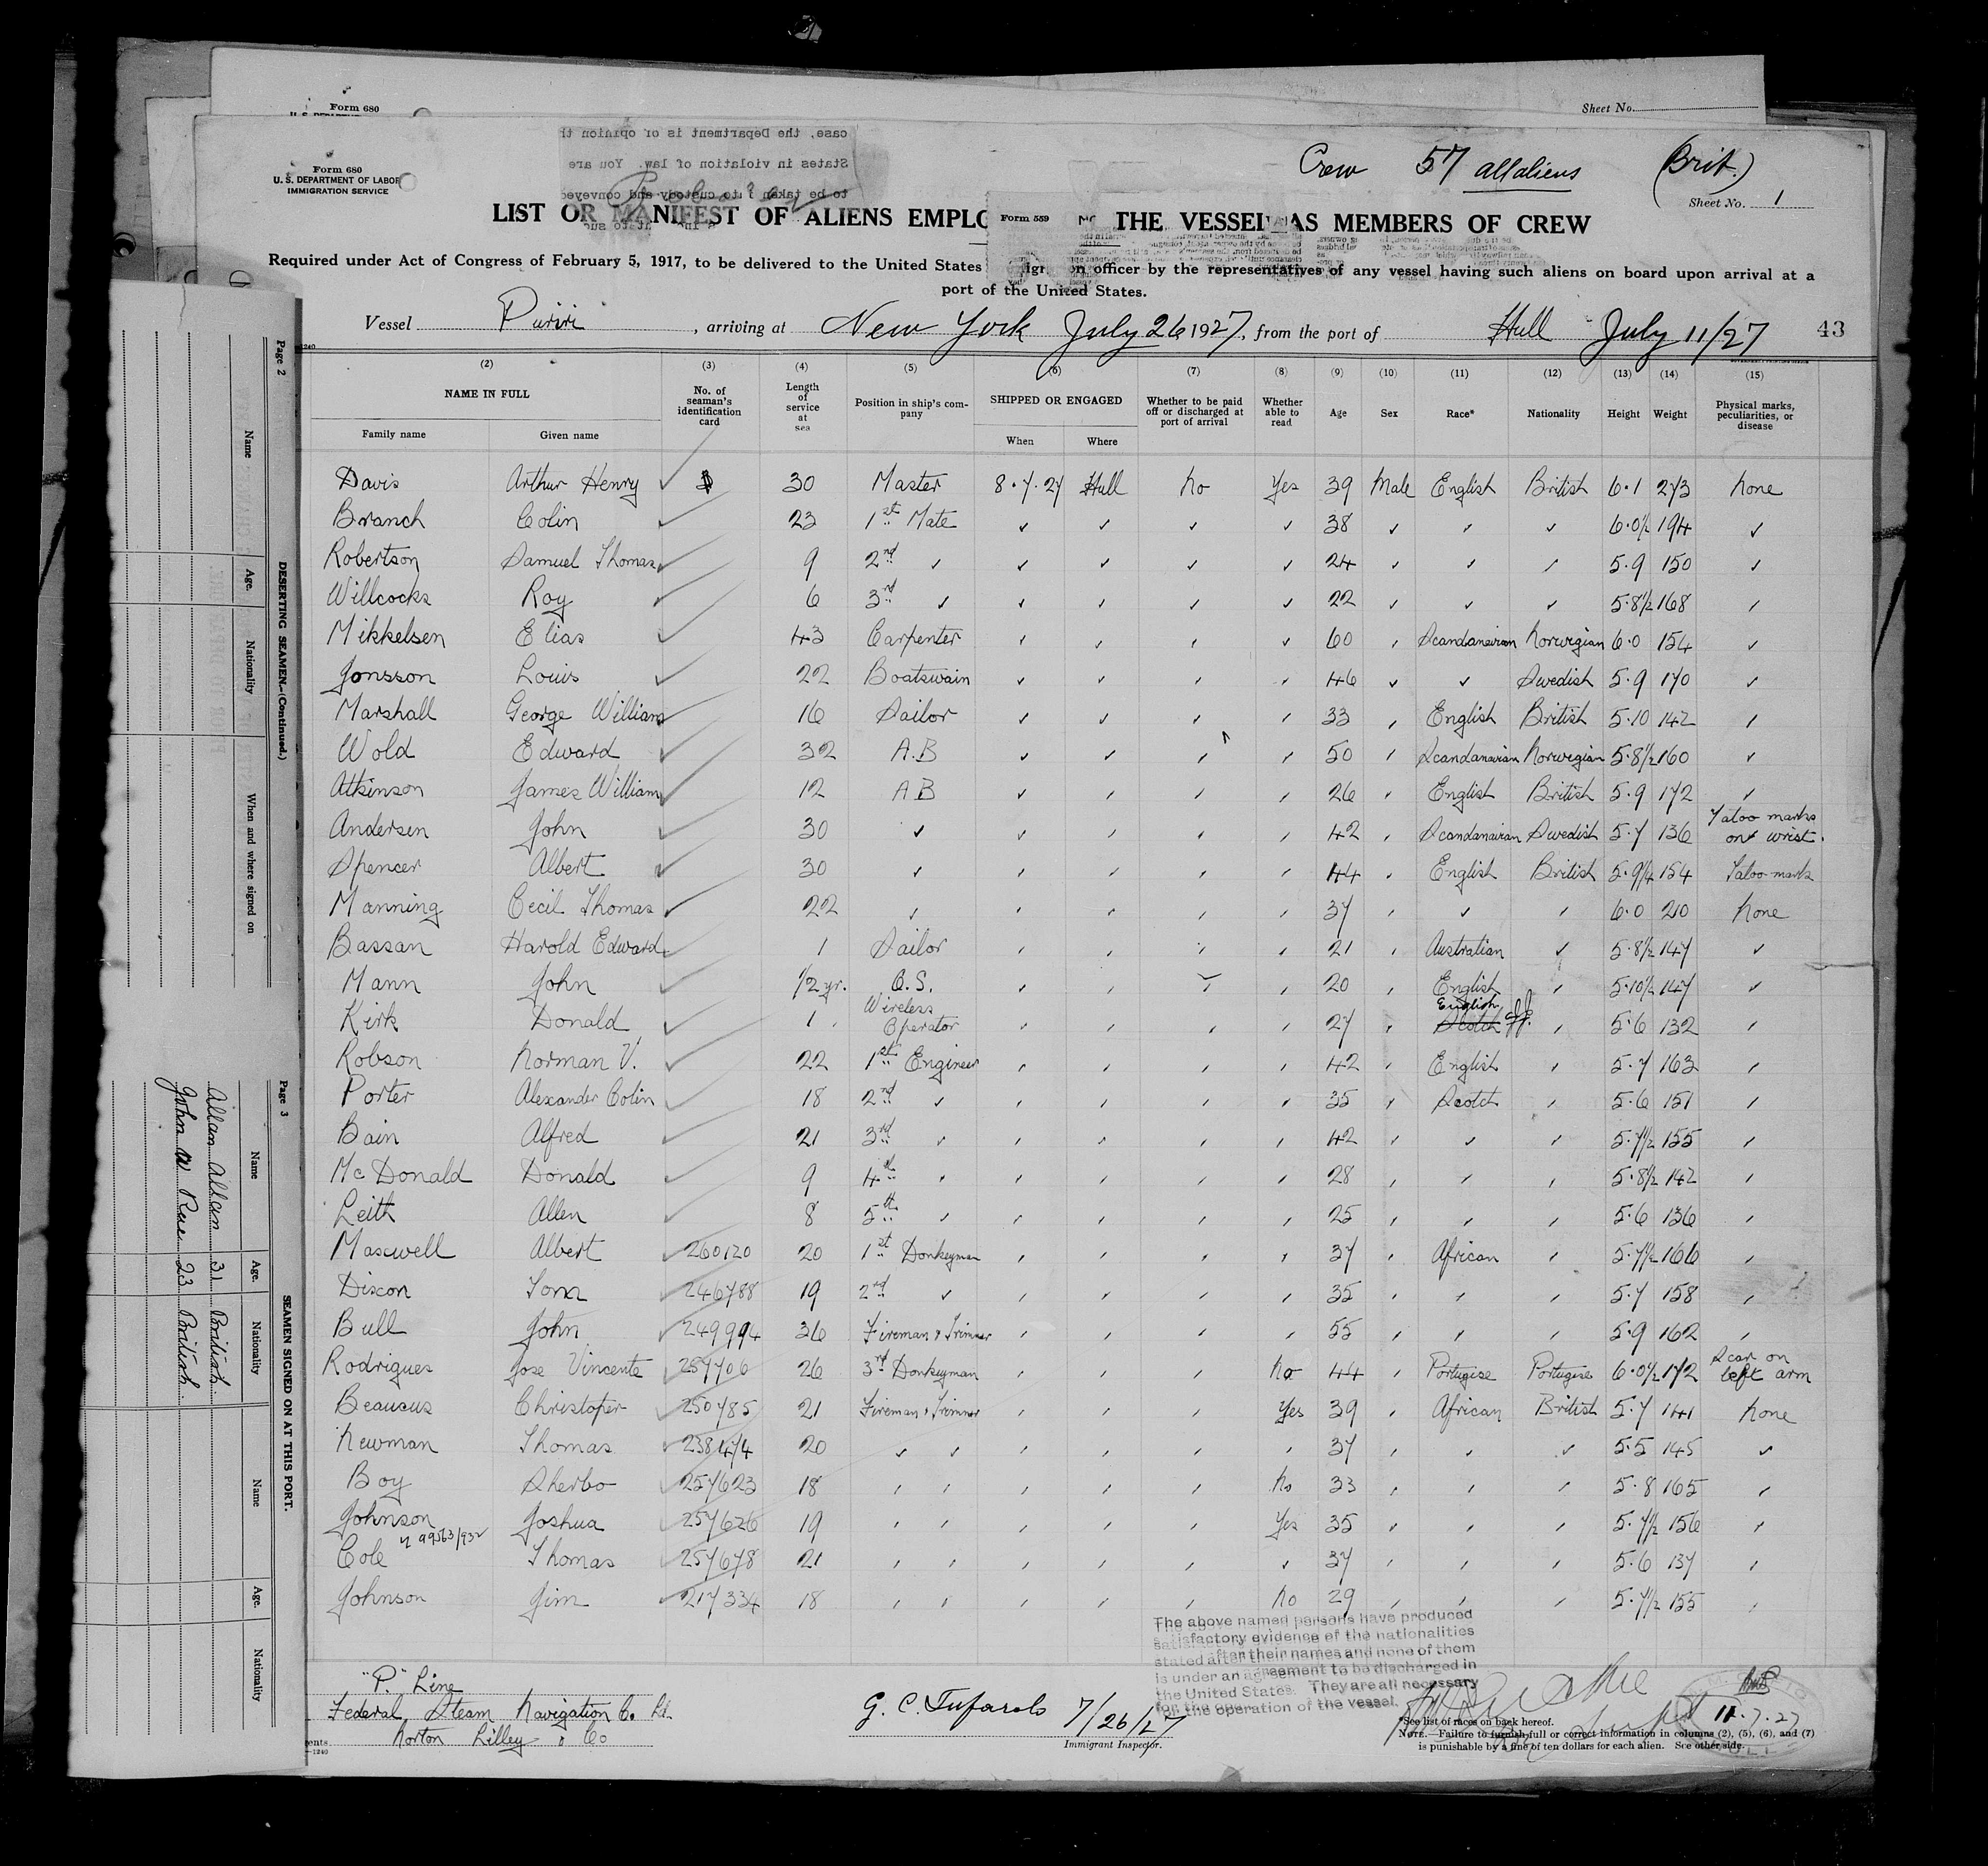 Form 680
U. S. DEPARTMENT OF LABOR
IMMIGRATION SERVICE
Sheet No.
Form 680
U. S. DEPARTMENT OF LABOR
IMMIGRATION SERVICE
case, the Department is or opinion th
States in violation of law. You are
to be taken into custody and conveye
Crew 57 all aliens (Brit.)
Sheet No. 1
LIST OR MANIFEST OF ALIENS EMPLO THE VESSEL AS MEMBERS OF CREW
Form 559
Required under Act of Congress of February 5, 1917, to be delivered to the United States officer by the representatives of any vessel having such aliens on board upon arrival at a
port of the United States.
Vessel Puriri, arriving at New York July 26 1927, from the port of Hull July 11/27 43
(2) (3) (4) (5) (6) (7) (8) (9) (10) (11) (12) (13) (14) (15)
NAME IN FULL No. of seaman's identification card Length of service at sea Position in ship's company SHIPPED OR ENGAGED Whether to be paid off or discharged at port of arrival Whether able to read Age Sex Race* Nationality Height Weight Physical marks, peculiarities, or disease
Family name Given name When Where
Davis Arthur Henry ✓ 30 Master 8.7.27 Hull No Yes 39 Male English British 6.1 273 None
Branch Colin ✓ 23 1st Mate ✓ ✓ ✓ ✓ 38 ✓ ✓ ✓ 6.0½ 194 ✓
Robertson Samuel Thomas ✓ 9 2nd ✓ ✓ ✓ ✓ ✓ 24 ✓ ✓ ✓ 5.9 150 ✓
Willcocks Roy ✓ 6 3rd ✓ ✓ ✓ ✓ ✓ 22 ✓ ✓ ✓ 5.8½ 168 ✓
Mikkelsen Elias ✓ 43 Carpenter ✓ ✓ ✓ ✓ 60 ✓ Scandanavian Norwegian 6.0 154 ✓
Jonsson Louis ✓ 22 Boatswain ✓ ✓ ✓ ✓ 46 ✓ ✓ Swedish 5.9 170 ✓
Marshall George William ✓ 16 Sailor ✓ ✓ ✓ ✓ 33 ✓ English British 5.10 142 ✓
Wold Edward ✓ 32 A.B ✓ ✓ ✓ ✓ 50 ✓ Scandanavian Norwegian 5.8½ 160 ✓
Atkinson James William ✓ 12 A B ✓ ✓ ✓ ✓ 26 ✓ English British 5.9 172 ✓
Andersen John ✓ 30 ✓ ✓ ✓ ✓ ✓ 42 ✓ Scandanavian Swedish 5.7 136 Tatoo marks on wrist.
Spencer Albert ✓ 30 ✓ ✓ ✓ ✓ ✓ 44 ✓ English British 5.9¼ 154 Tatoo marks
Manning Cecil Thomas ✓ 22 ✓ ✓ ✓ ✓ ✓ 37 ✓ ✓ ✓ 6.0 210 None
Bassan Harold Edward ✓ 1 Sailor ✓ ✓ ✓ ✓ 21 ✓ Australian ✓ 5.8½ 147 ✓
Mann John ✓ ½ yr. O.S. ✓ ✓ ✓ ✓ 20 ✓ English ✓ 5.10½ 147 ✓
Kirk Donald ✓ 1 Wireless Operator ✓ ✓ ✓ ✓ 27 ✓ English Scotch ✓ 5.6 132 ✓
Robson Norman V. ✓ 22 1st Engineer ✓ ✓ ✓ ✓ 42 ✓ English ✓ 5.7 163 ✓
Porter Alexander Colin ✓ 18 2nd ✓ ✓ ✓ ✓ ✓ 35 ✓ Scotch ✓ 5.6 151 ✓
Bain Alfred ✓ 21 3rd ✓ ✓ ✓ ✓ ✓ 42 ✓ ✓ ✓ 5.7½ 155 ✓
McDonald Donald ✓ 9 4th ✓ ✓ ✓ ✓ ✓ 28 ✓ ✓ ✓ 5.8½ 142 ✓
Leith Allen ✓ 8 5th ✓ ✓ ✓ ✓ ✓ 25 ✓ ✓ ✓ 5.6 136 ✓
Maxwell Albert ✓ 260120 20 1st Donkeyman ✓ ✓ ✓ ✓ 37 ✓ African ✓ 5.7½ 166 ✓
Dixon Tom ✓ 246788 19 2nd ✓ ✓ ✓ ✓ ✓ 35 ✓ ✓ ✓ 5.7 158 ✓
Bull John ✓ 249994 36 Fireman & Trimmer ✓ ✓ ✓ ✓ 55 ✓ ✓ ✓ 5.9 162 ✓
Rodrigues Jose Vincente ✓ 257706 26 3rd Donkeyman ✓ ✓ ✓ No 44 ✓ Portugese Portugese 6.0½ 172 Scar on left arm
Beaucus Christopher ✓ 250785 21 Fireman & Trimmer ✓ ✓ ✓ Yes 39 ✓ African British 5.7 141 None
Newman Thomas ✓ 238474 20 ✓ ✓ ✓ ✓ ✓ ✓ 37 ✓ ✓ ✓ 5.5 145 ✓
Boy Sherbo ✓ 257623 18 ✓ ✓ ✓ ✓ ✓ No 33 ✓ ✓ ✓ 5.8 165 ✓
Johnson Joshua ✓ 257626 19 ✓ ✓ ✓ ✓ ✓ Yes 35 ✓ ✓ ✓ 5.7½ 156 ✓
Cole Thomas ✓ 257678 21 ✓ ✓ ✓ ✓ ✓ ✓ 37 ✓ ✓ ✓ 5.6 137 ✓
Johnson Jim ✓ 217334 18 ✓ ✓ ✓ ✓ ✓ No 29 ✓ ✓ ✓ 5.7½ 155 ✓
The above named persons have produced
satisfactory evidence of the nationalities
stated after their names and none of them
is under an agreement to be discharged in
the United States. They are all necessary
for the operation of the vessel.
"P." Line
Federal Steam Navigation Co. Ltd.
Norton Lilley & Co
G. C. Tufarolo 7/26/27
Immigrant Inspector.
*See list of races on back hereof.
NOTE.—Failure to furnish full or correct information in columns (2), (5), (6), and (7)
is punishable by a fine of ten dollars for each alien. See other side.
11.7.27
Page 2
DESERTING SEAMEN.—(Continued.)
Name Age. Nationality When and where signed on
Page 3
SEAMEN SIGNED ON AT THIS PORT.
Name Age. Nationality Name Age. Nationality
Allan Allan 31 British
John W Rue 23 British